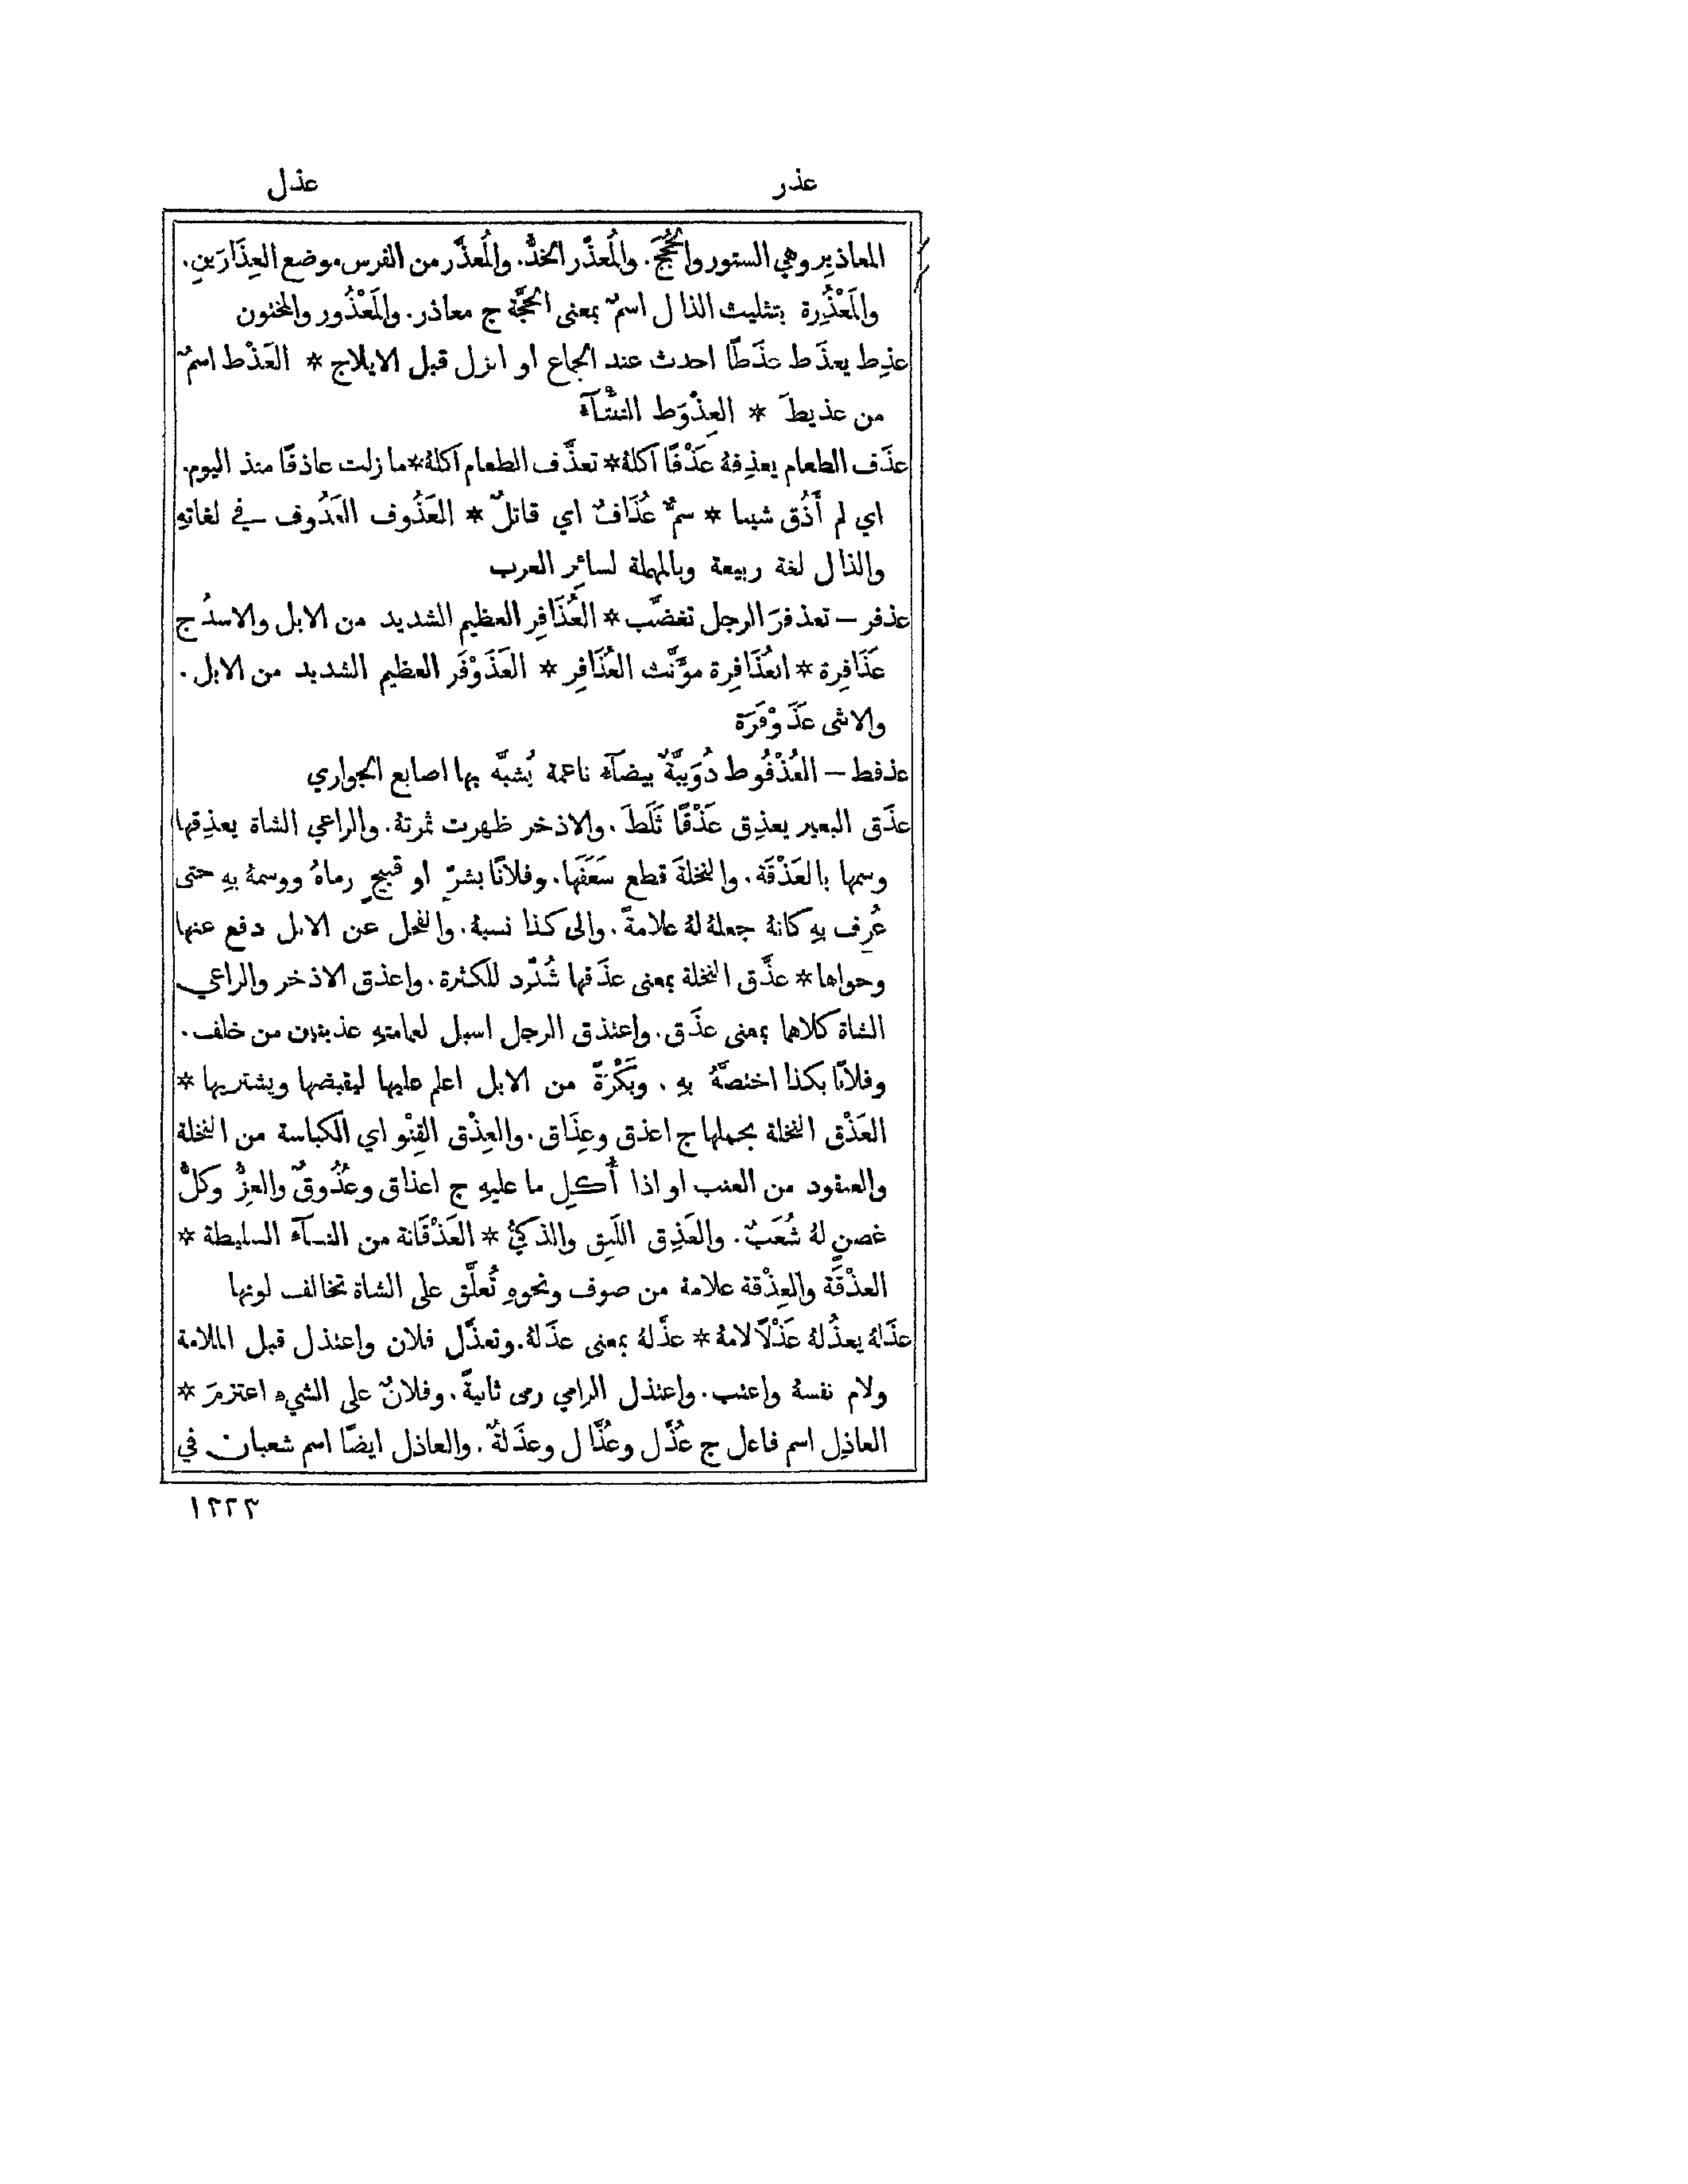 عذر عذل
المعاذير وهي الستور والحُجَجَ. والمُعذَّر الخدُّ. والمُعذَّر من الفرس موضع العِذَارَينِ.
والمَعْذُِرة بتثليث الذال اسمٌ بمعنى الحجَّة ج معاذر. والمَعْذُور والمختون
عذِط يعذَط عذَطًا احدث عند الجماع او انزل قبل الايلاج * العَذْط اسمٌ
من عذيطَ * العِذْوَط النشَّآءُ
عذَف الطعام يعذِفهُ عَذْفًا اكلهُ * تعذَّف الطعام اكلهُ * ما زلت عاذفًا منذ اليوم.
اي لم أَذُق شيـا * سمٌّ عُذَافٌ اي قاتلٌ * العَذُوف العَدُوف في لغاتهِ
والذال لغة ربيعة وبالمهملة لسائِر العرب
عذفر – تعذفرَ الرجل تغضَّب * العُذَافِر العظيم الشديد من الابل والاسدُ ج
عَذَافِرة * العُذَافِرة مؤَنَّث العُذَافِر * العَذَوْفَر العظيم الشديد من الابل.
والانثى عَذَوْفَرَة
عذفط – العُذْفُوط دُوَيبَّةٌ بيضآءُ ناعمة يُشبَّه بها اصابع الجواري
عذَق البعير يعذِق عَذْقًا ثَلَطَ. والاذخر ظهرت ثمرتهُ. والراعي الشاة يعذِقها
وسمها بالعَذْقَة. والنخلةَ قطع سَعَفَها. وفلانًا بشرٍّ او قبيحٍ رماهُ ووسمهُ بهِ حتى
عُرِف بهِ كانهُ جعلهُ لهُ علامةً. والى كذا نسبهُ. والفحل عن الابل دفع عنها
وحواها * عذَّق النخلة بمعنى عذَقها شُدّد للكثرة. واعذق الاذخر والراعي
الشاة كلاهما بمعنى عذَق. واعتذق الرجل اسبل لعامتهِ عذبتين من خلف.
وفلانًا بكذا اختصَّهُ بهِ. وبَكْرَةً من الابل اعلم عليها ليقبضها ويشتريها *
العَذْق النخلة بحملها ج اعذق وعِذَاق. والعِذْق القِنْو اي الكباسة من النخلة
والعنقود من العنب او اذا أُكِل ما عليهِ ج اعذاق وعُذُوقٌ والعزُّ وكلُّ
غصنٍ لهُ شُعَبٌ. والعَذِق اللَبِق والذكيُّ * العَذْقَانة من النسآءِ السليطة *
العذْقَة والعِذْقة علامة من صوف ونحوهِ تُعلَّق على الشاة تخالف لونها
عذَلهُ يعذُلهُ عَذْلًا لامهُ * عذَّلهُ بمعنى عذَلهُ. وتعذَّل فلان واعتذل قبل الملامة
ولام نفسهُ واعتب. واعتذل الرامي رمى ثانيةً. وفلانٌ على الشيءِ اعتزمَ *
العاذِل اسم فاعل ج عُذَّل وعُذَّال وعذَلةٌ. والعاذل ايضًا اسم شعبان في
١٢٢٣